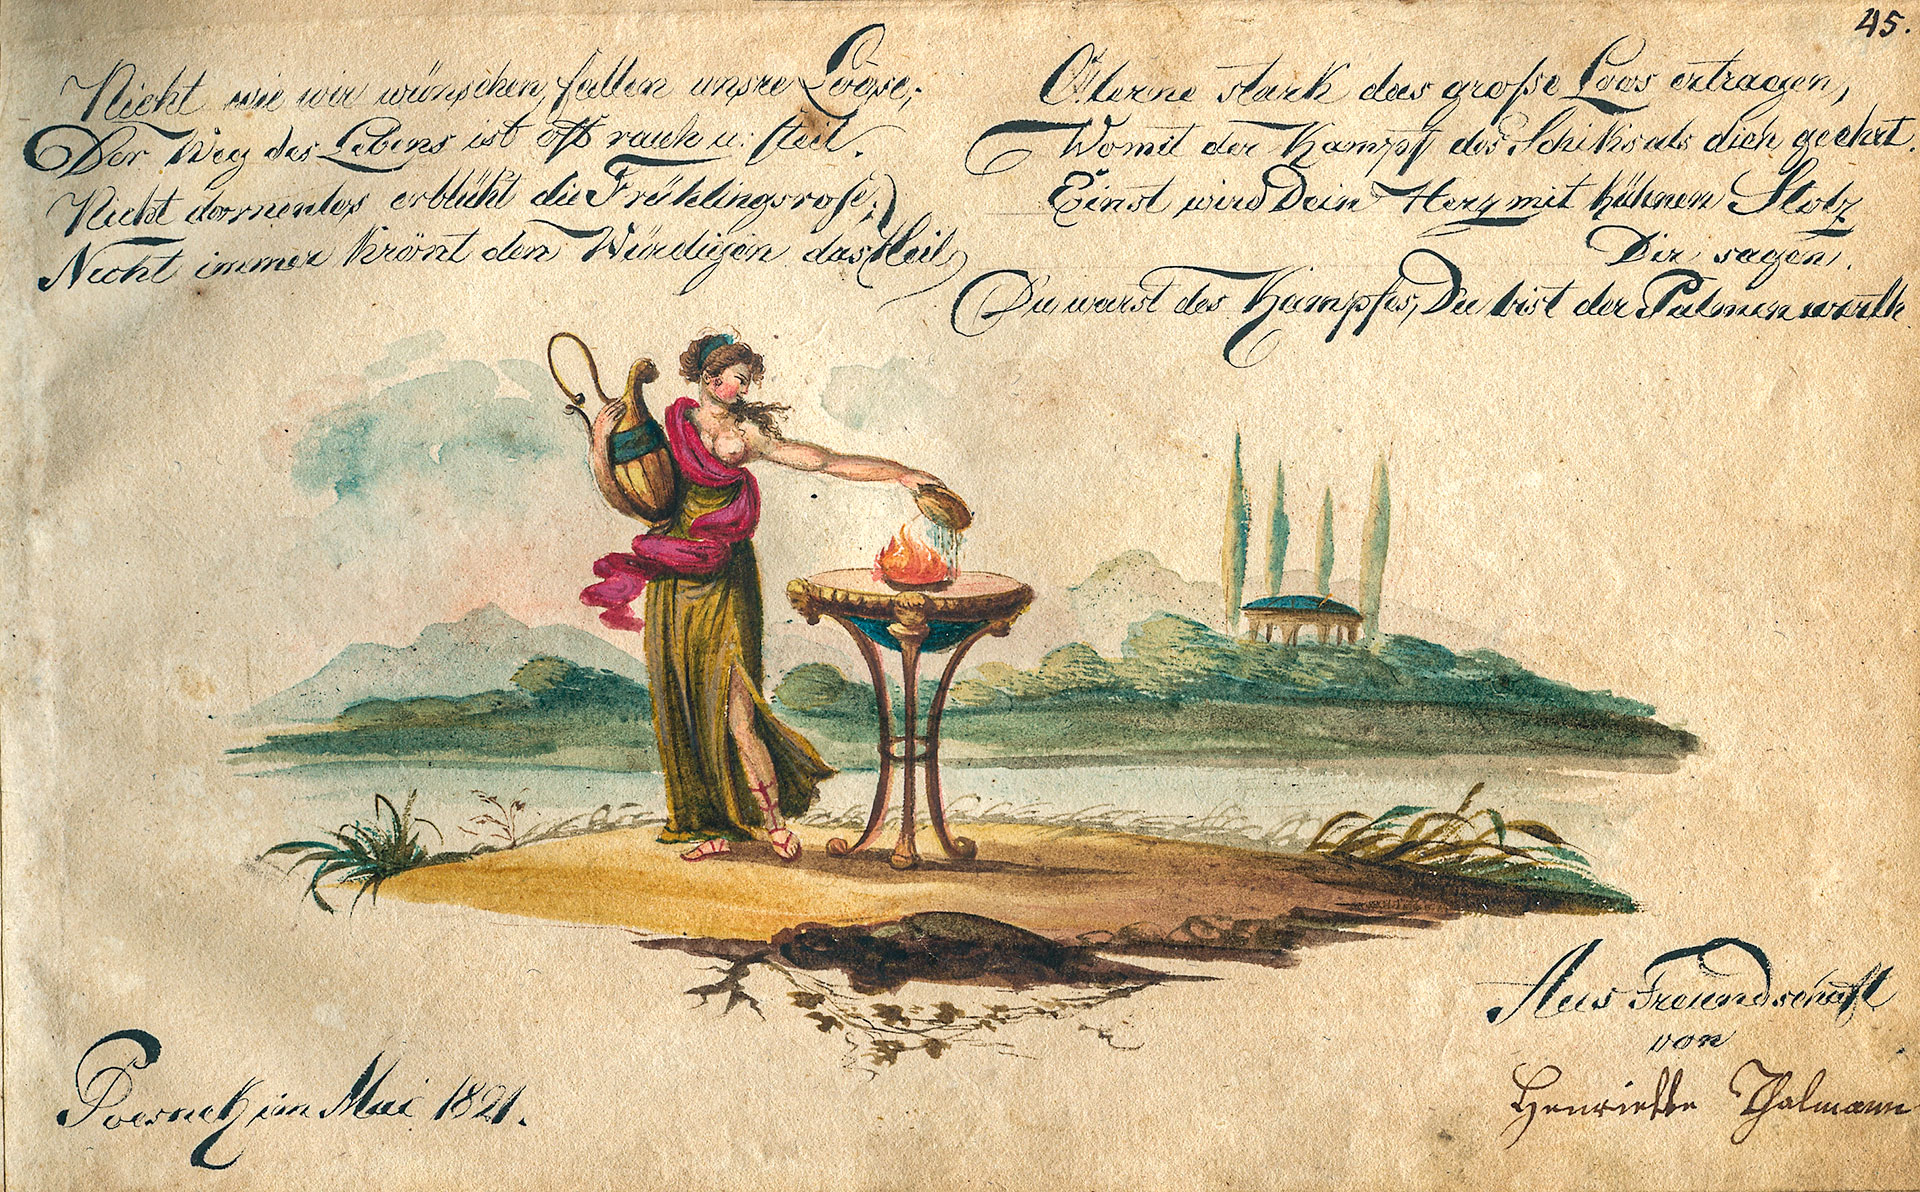 45.
Nicht wie wir wünschen, fallen unsre Loose;
Der Weg des Lebens ist oft rauh u: steil.
Nicht dornenlos erblüht die Frühlingsrose;
Nicht immer krönt den Würdigen das Heil,
O! lerne stark das große Loos ertragen,
Womit der Kampf des Schiksals dich geehrt.
Einst wird Dein Herz mit kühnen Stolz
Dir sagen.
Du warst des Kampfes, Du bist der Palmen werth
Poesneck im Mai 1821.
Aus Freundschaft
von
Henriette Thalmann